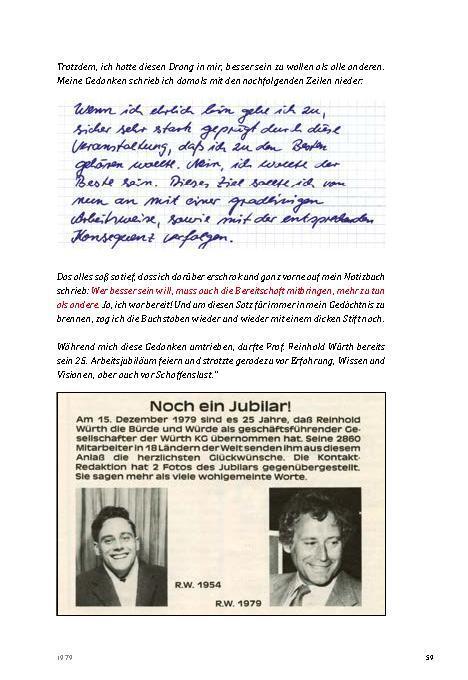 Trotzdem, ich hatte diesen Drang in mir, besser sein zu wollen als alle anderen.
Meine Gedanken schrieb ich damals mit den nachfolgenden Zeilen nieder:
Wenn ich ehrlich bin gebe ich zu,
sicher sehr stark geprägt durch diese
Veranstaltung, daß ich zu den Besten
gehören wollte. Nein, ich wollte der
Beste sein. Dieses Ziel sollte ich von
nun an mit einer gradlinigen
Arbeitsweise, sowie mit der entsprechenden
Konsequenz verfolgen.
Das alles saß so tief, dass ich darüber erschrak und ganz vorne auf mein Notizbuch
schrieb: Wer besser sein will, muss auch die Bereitschaft mitbringen, mehr zu tun
als andere. Ja, ich war bereit! Und um diesen Satz für immer in mein Gedächtnis zu
brennen, zog ich die Buchstaben wieder und wieder mit einem dicken Stift nach.
Während mich diese Gedanken umtrieben, durfte Prof. Reinhold Würth bereits
sein 25. Arbeitsjubiläum feiern und strotzte geradezu vor Erfahrung, Wissen und
Visionen, aber auch vor Schaffenslust."
Noch ein Jubilar!
Am 15. Dezember 1979 sind es 25 Jahre, daß Reinhold
Würth die Bürde und Würde als geschäftsführender Ge-
sellschafter der Würth KG übernommen hat. Seine 2860
Mitarbeiter in 18 Ländern der Welt senden ihm aus diesem
Anlaß die herzlichsten Glückwünsche. Die Kontakt-
Redaktion hat 2 Fotos des Jubilars gegenübergestellt.
Sie sagen mehr als viele wohlgemeinte Worte.
R.W. 1954
R.W. 1979
1979
59